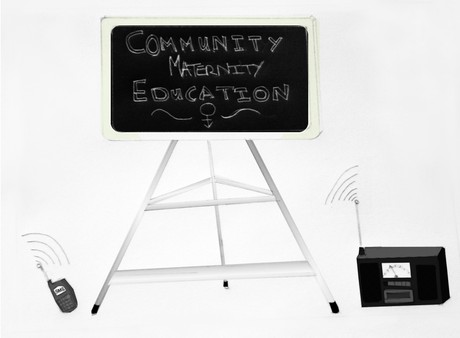 COMMUNITY
MATERNITY
EDUCATION
SMS